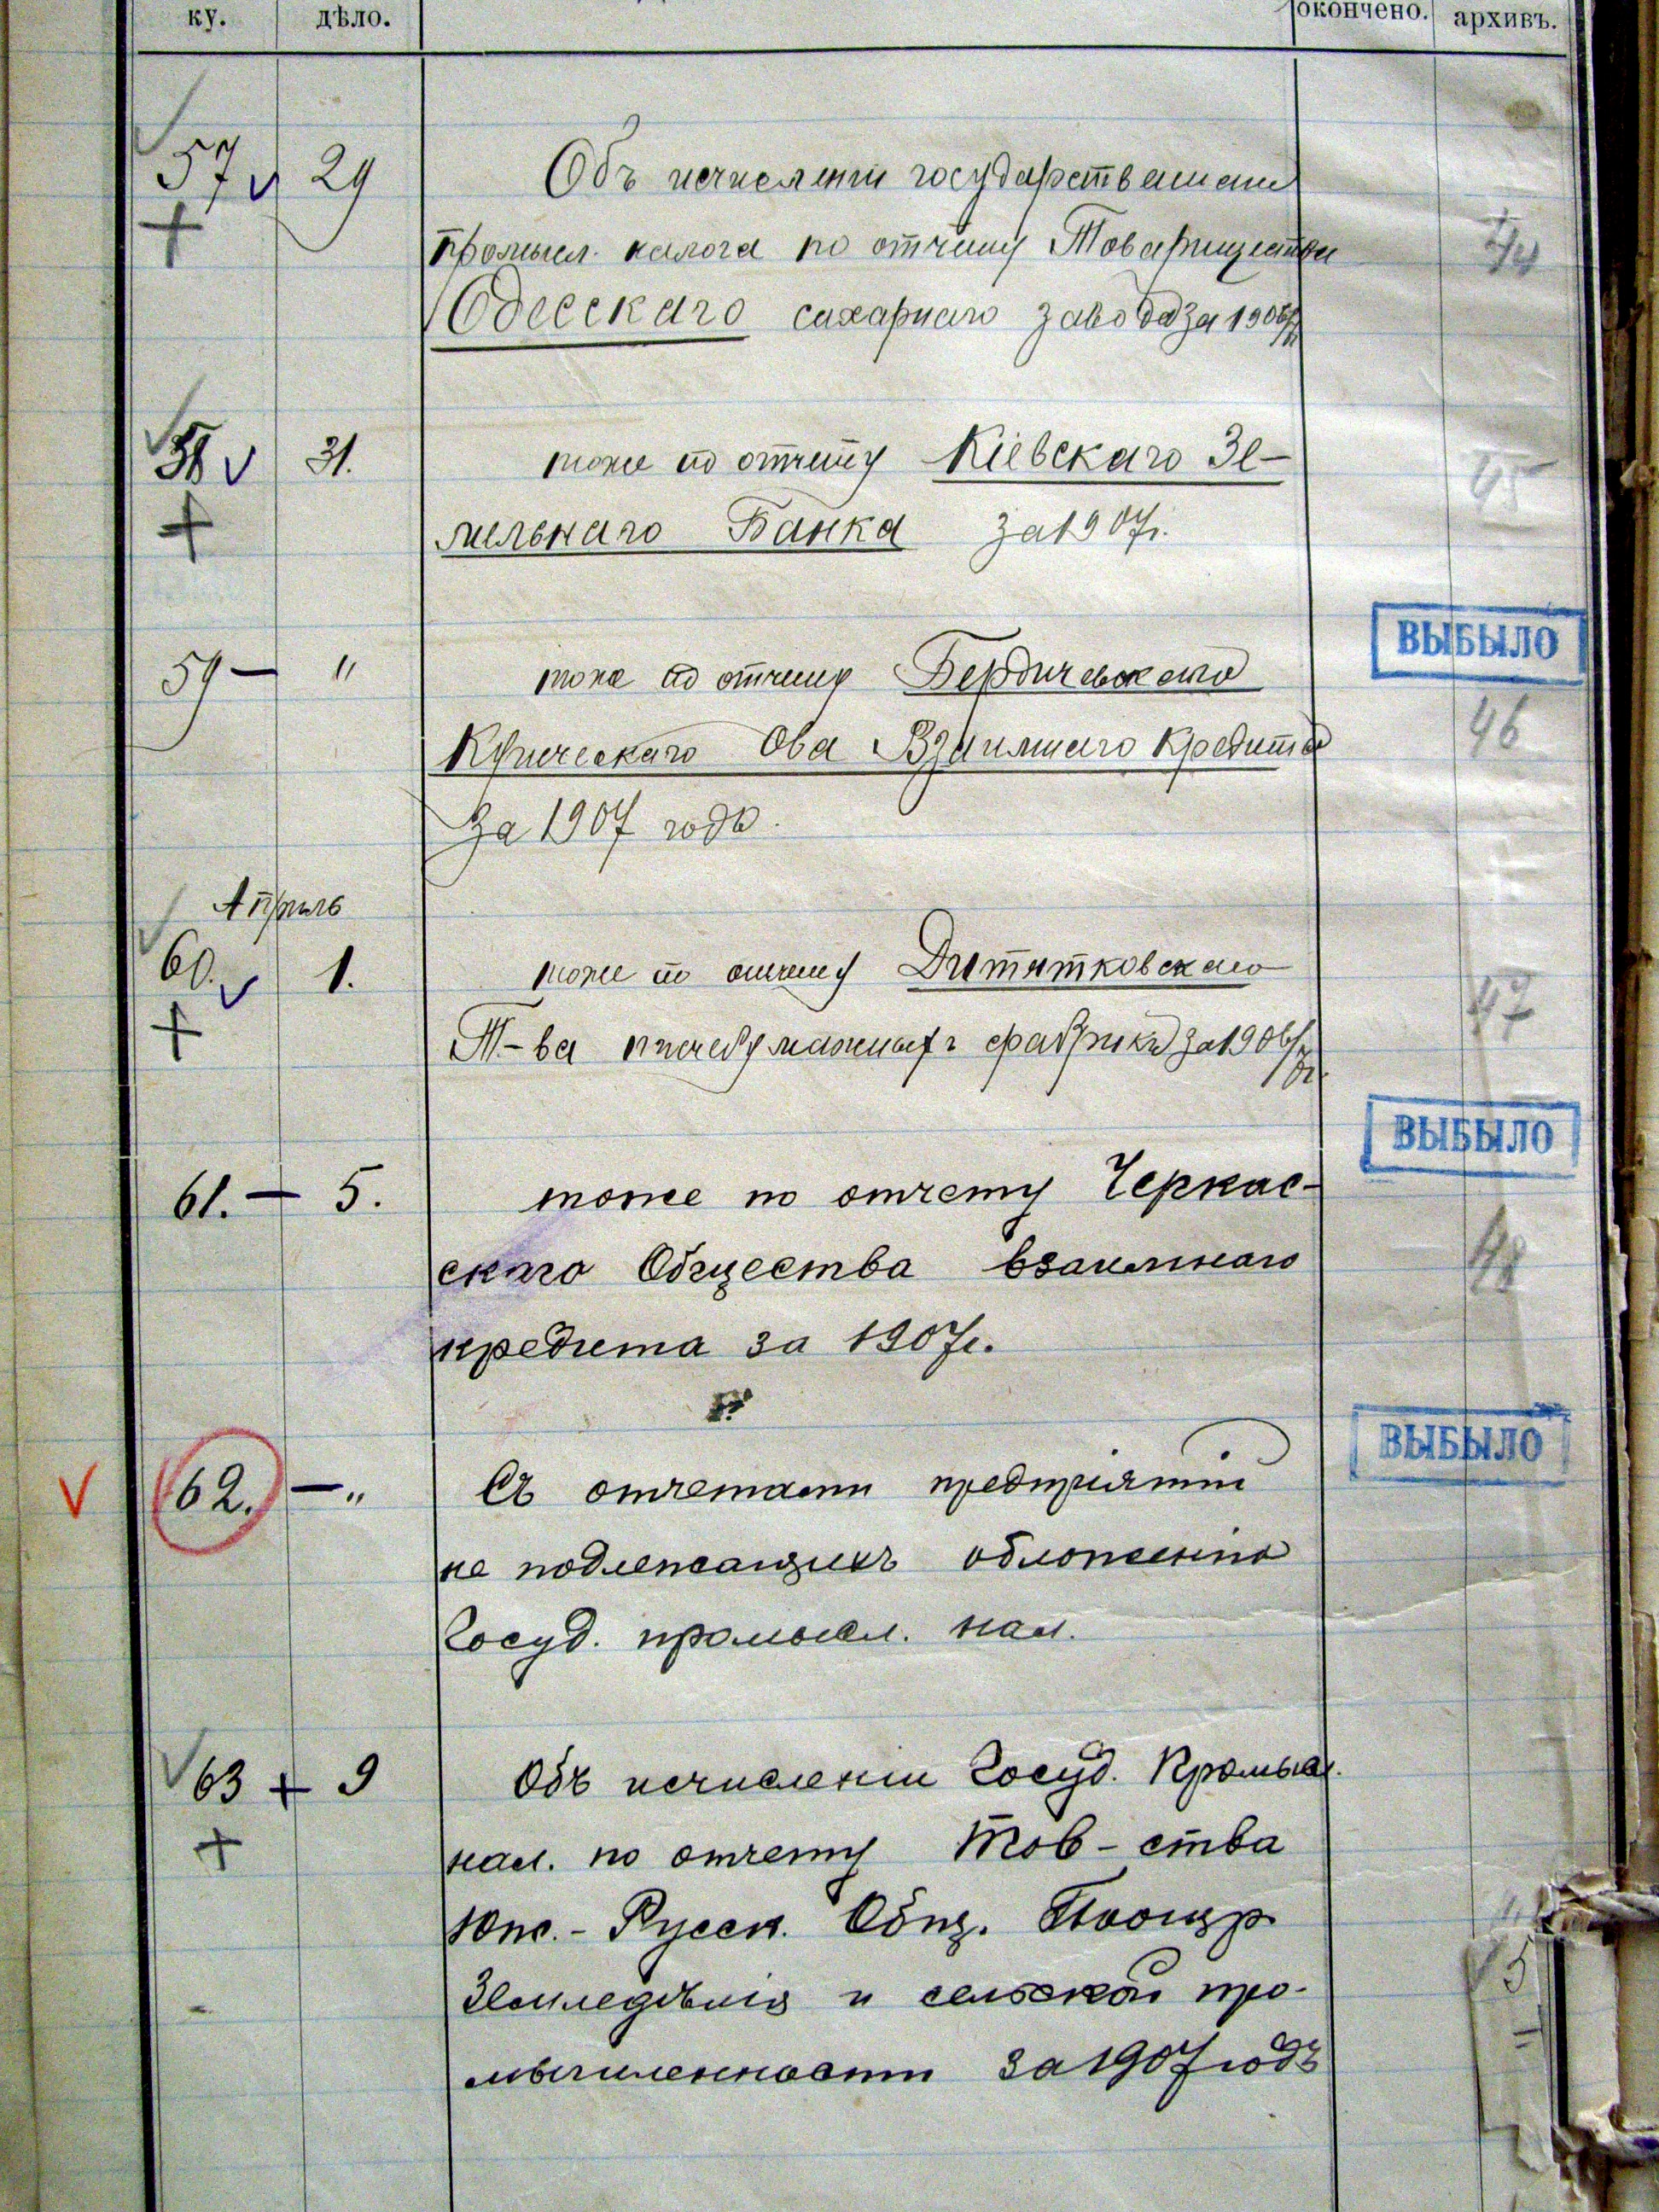 ку. дѣло. окончено. архивъ.
57 29 Объ исчислении государственнаго
промысл. налога по отчету Товарищества 44
Одесскаго сахарнаго завода за 1906/7г
58 31. тоже по отчету Кіевскаго Зе-
45
мельнаго Банка за 1907г.
ВЫБЫЛО
59 — " тоже по отчету Бердичевскаго
Купческаго Ова Взаимнаго Кредита 46
за 1907 годъ.
Апрѣль
60. 1. тоже по отчету Дитятковскаго
47
Т-ва писчебумажныхъ фабрикъ за 1906/7г.
ВЫБЫЛО
61. — 5. тоже по отчету Черкас-
скаго Общества взаимнаго 48
кредита за 1907г.
ВЫБЫЛО
62. — " Съ отчетами предпріятій
не подлежащихъ обложенію
Госуд. промысл. нал.
63 + 9 Объ исчисленіи Госуд. Промысл.
нал. по отчету Тов-ства
Юж.-Русск. Общ. Поощр.
Земледѣлія и сельской про-
мышленности за 1907 годъ